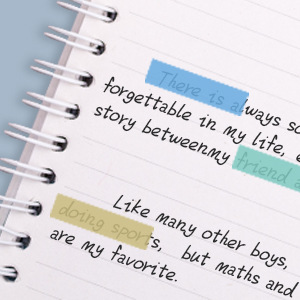 There is always so
forgettable in my life, e
story betweenmy friend a
Like many other boys,
doing sports, but maths and
are my favorite.